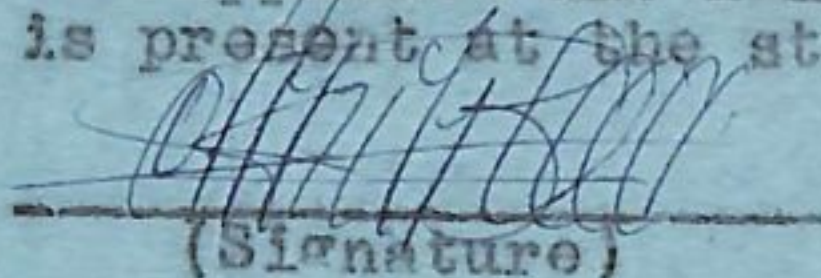 is present at the st
(Signature)